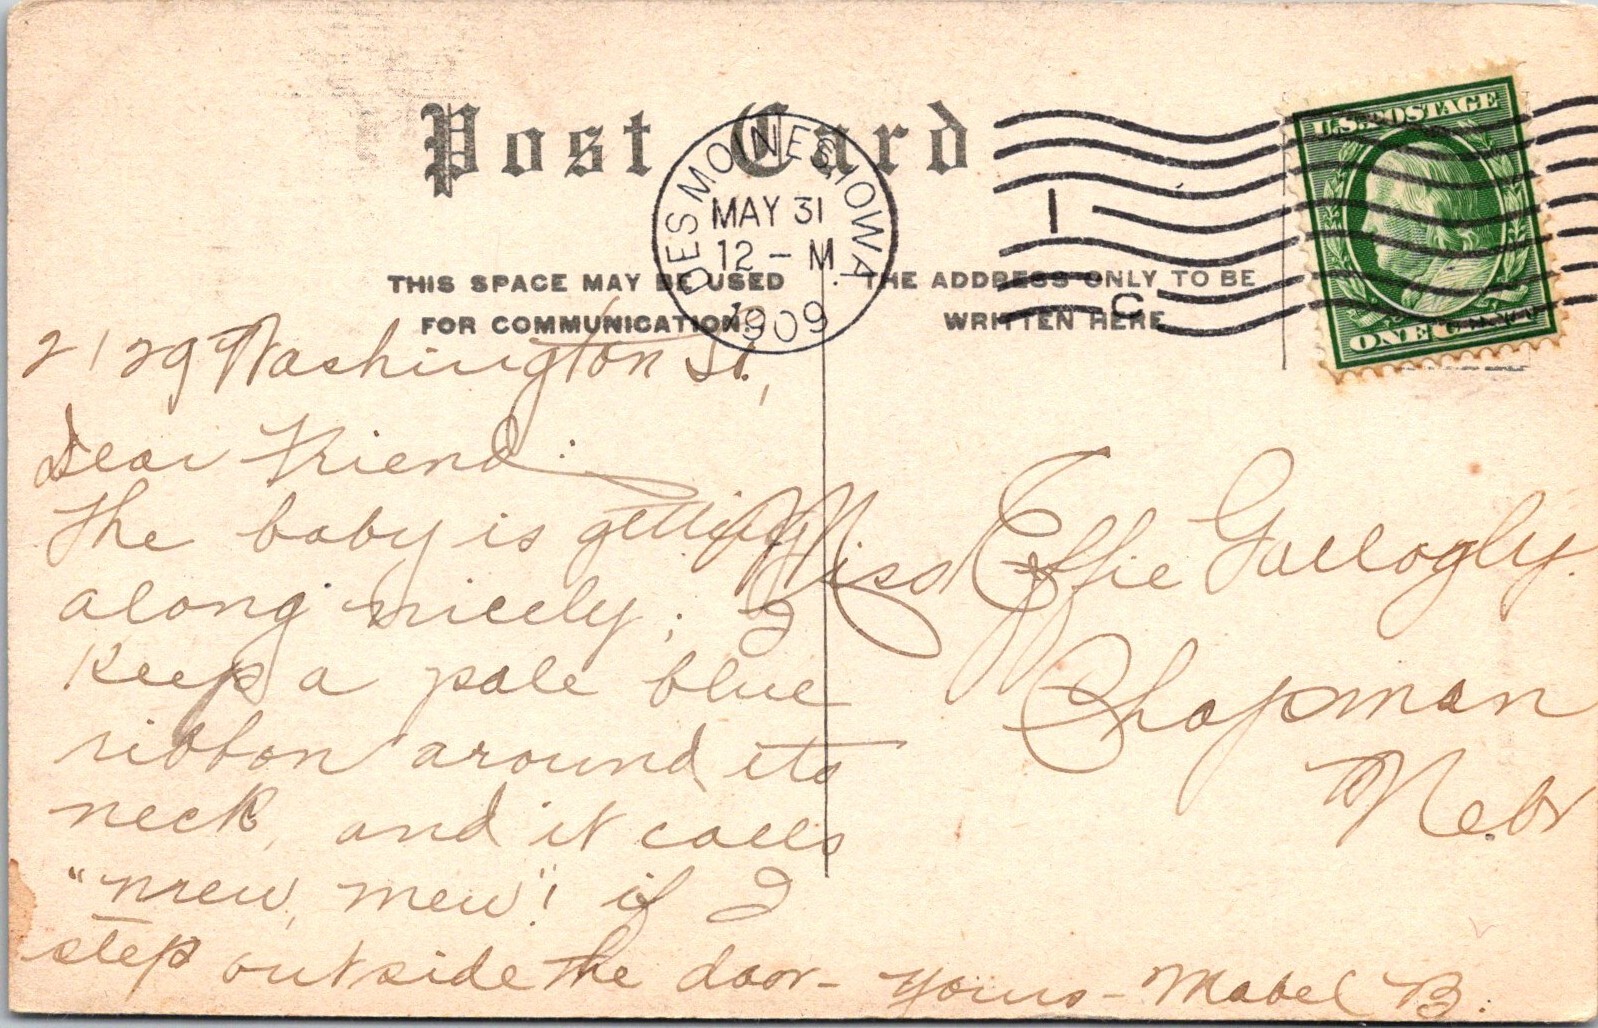 Post Card
DES MOINES, IOWA.
MAY 31
12 - M
1909
1
C
U.S. POSTAGE
ONE CENT
THIS SPACE MAY BE USED
FOR COMMUNICATION.
THE ADDRESS ONLY TO BE
WRITTEN HERE
2129 Washington St.,
Dear Friend:
The baby is getting
along nicely; I
keep a pale blue
ribbon around its
neck, and it calls
"mew, mew"! if I
step outside the door - Yours - Mabel B.
Miss Effie Gallogly.
Chapman
Nebr